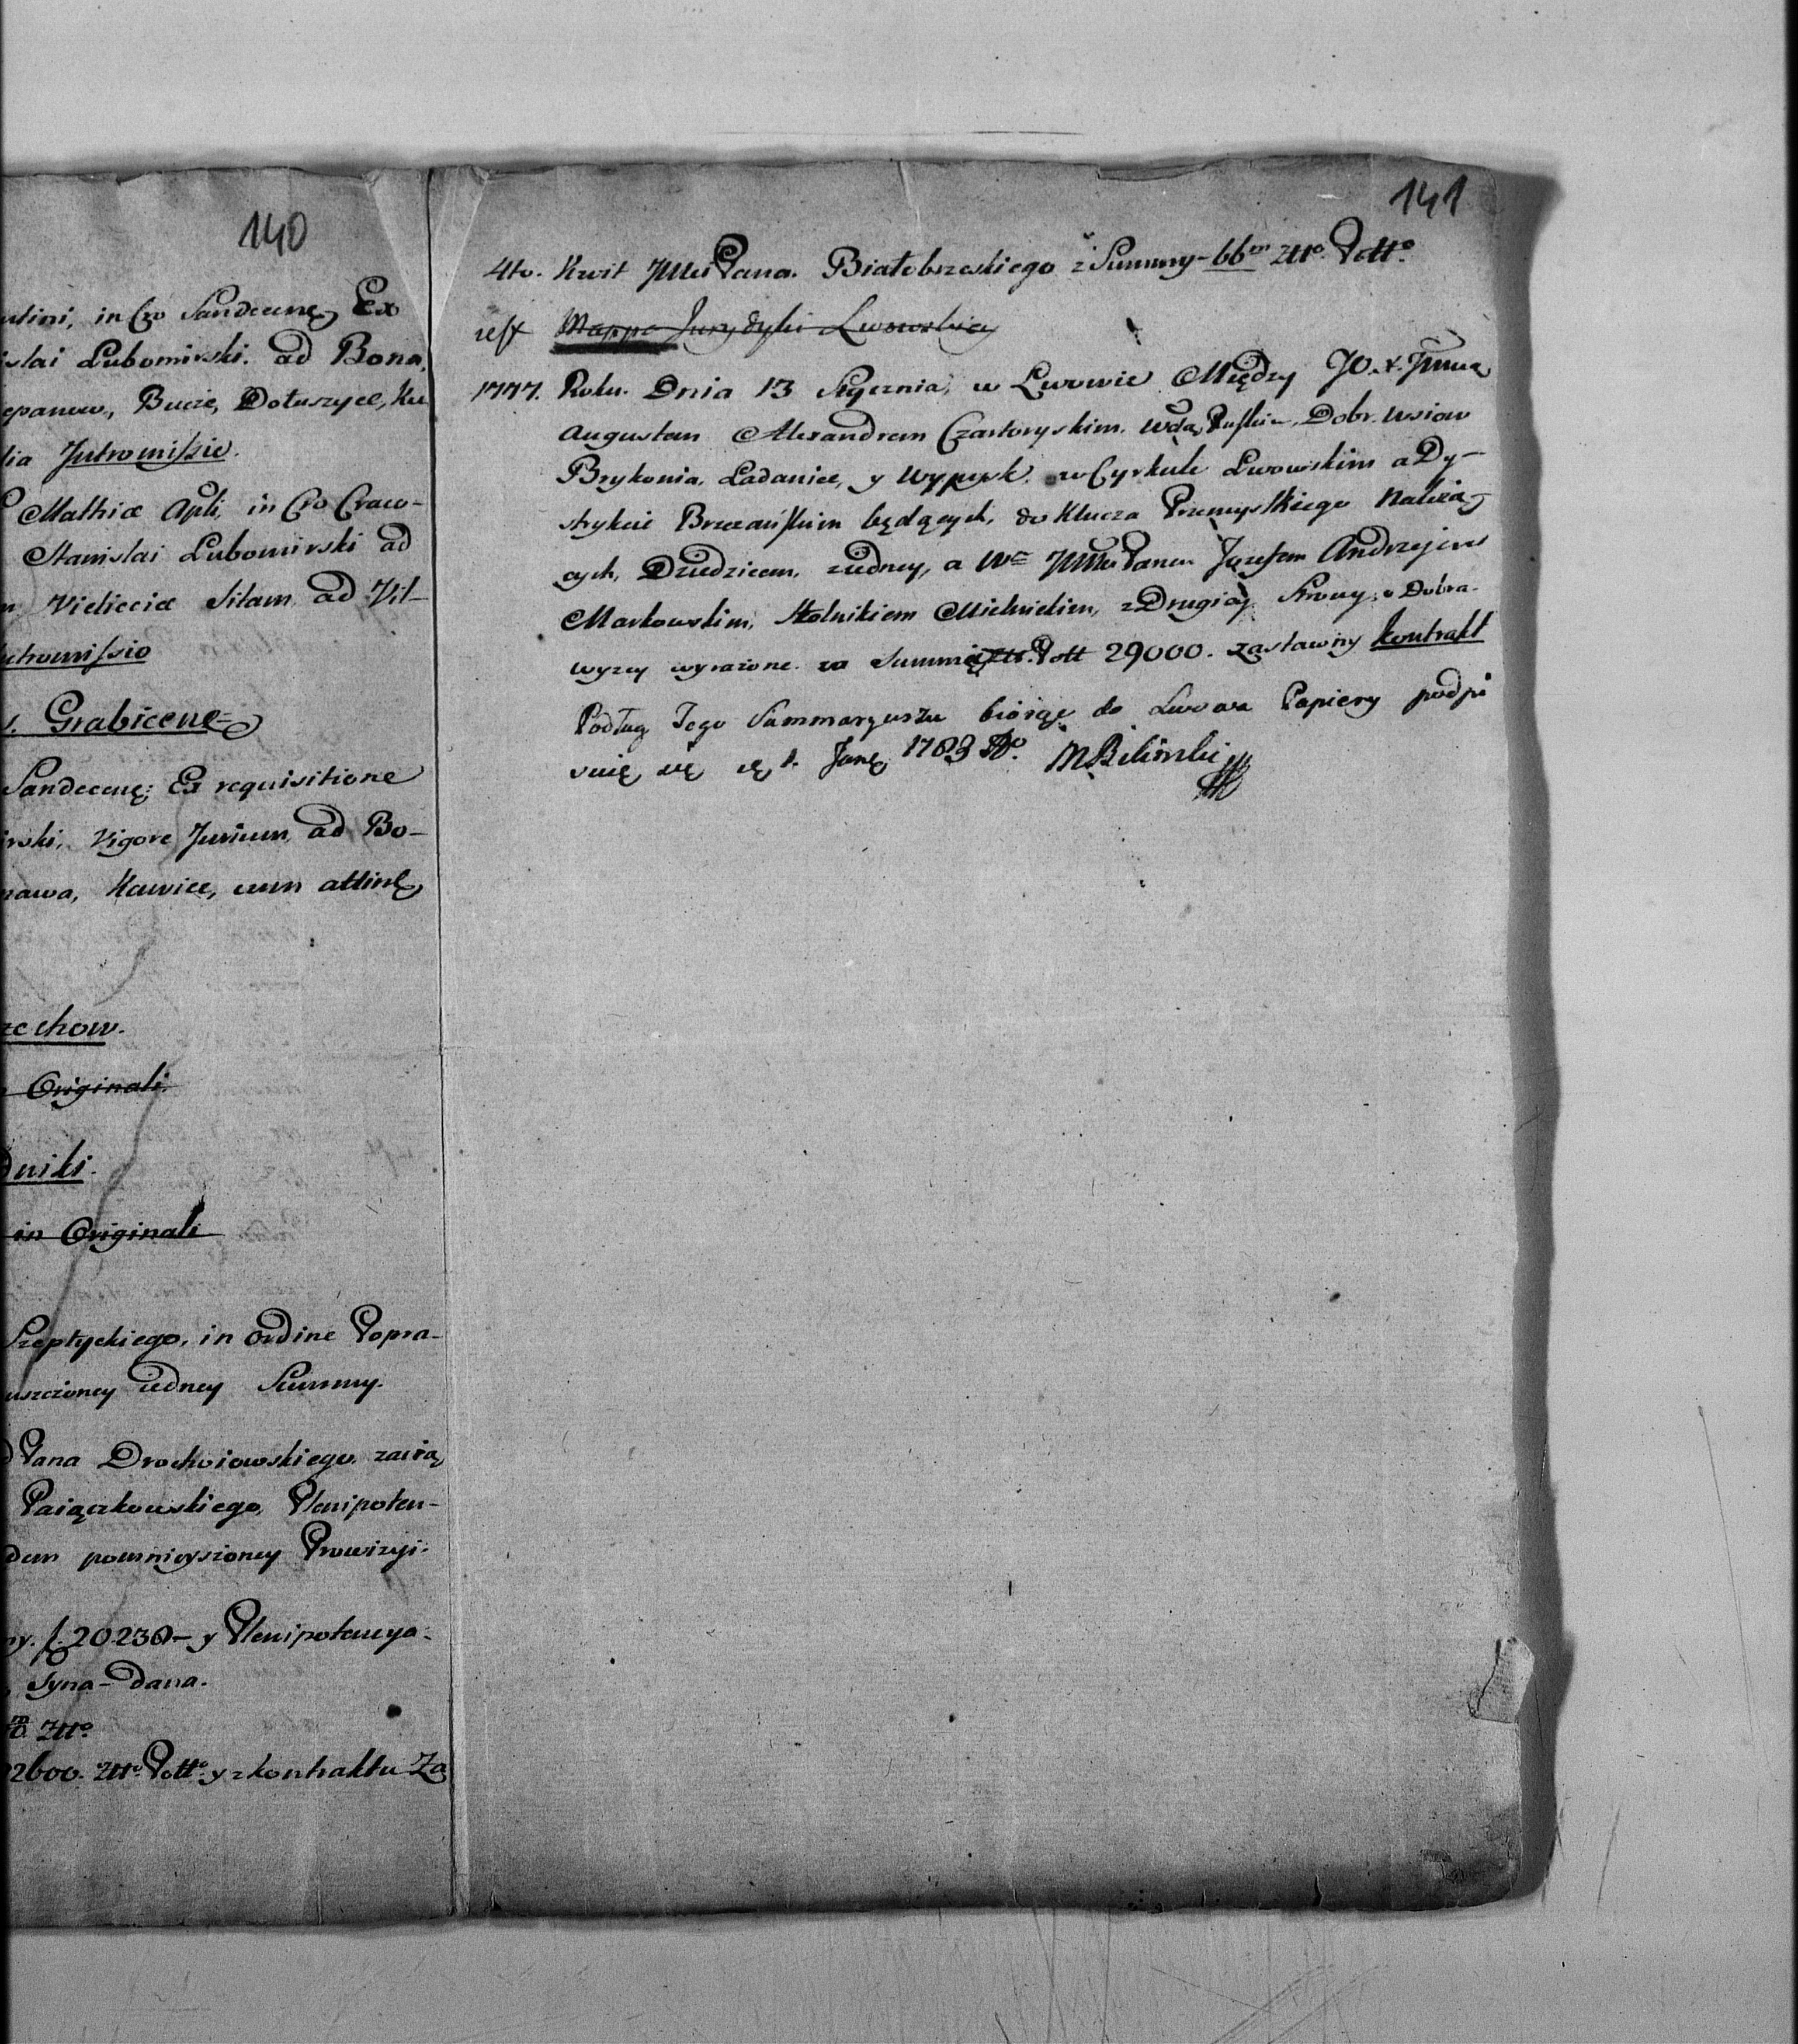 140
in Cro Sandecenę Ex
slai Lubomirski. ad Bona,
epanow, Bucze, Dołuszyce, Ku
lia Intromissie.
Mathiæ Apli, in Cro Craco-
Stanislai Lubomirski ad
Vieliccia Sitam ad Vit-
tromissio
Grabicene
Sandecenę: Ex requisitione
irski, Vigore Jurium ad Bo-
nawa, Kawice, cum attinę
zechow.
Originali.
dniki.
in Originali
Szeptyckiego, in ordine Popra-
uszczoney iedney Summy.
Pana Drochoiowskiego. zawią
Paiączkowskiego, Plenipoten-
dem pomnieyszoney Prowizyi.
ny. f. 20230 – y Plenipotencya.
Syna – Dana.
m Złło
2600. Złło Pollo y z kontraktu Za
141
4to. Kwit JMci Pana. Białobrzeskiego z Summy – 66m Złło Pollo
rest Mappa Jurydyki Lwowskiey
1777. Roku. Dnia 13 Stycznia, w Lwowie Między JO. X. Jmcią
Augustem Alexandrem Czartoryskim. Wdą Ruskim, Dobr. Wsiow
Brykonia, Ladaniec, y Wypysk. w Cyrkule Lwowskim a Dy-
strykcie Brzezańskim będących, do Klucza Przemyslkiego Należą
cych, Dziedzicem, z iedney, a Wm JMci Panem Jozefem Andrzejem
Markowskim, Stolnikiem Mielnickim, z Drugiey Strony, o Dobra
wyzey wyrazone. za Summę Złł. Poll 29000. zastawny kontrakt
Podług Tego Summaryuszu biorąc do Lwowa Papiery podpi
suię się d. 1. Janę 1783 Ao. M Bilinski